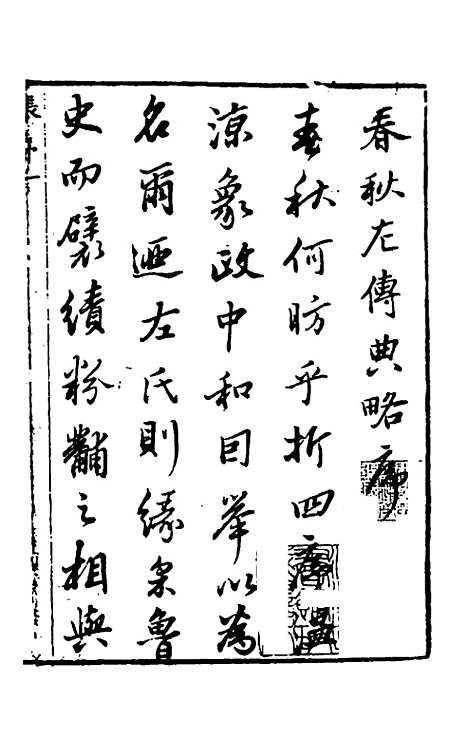 春秋左傳典略序
春秋何昉乎折四序溫
涼象政中和因舉以爲
名爾迺左氏則緣宗魯
史而襞績粉黼之相與